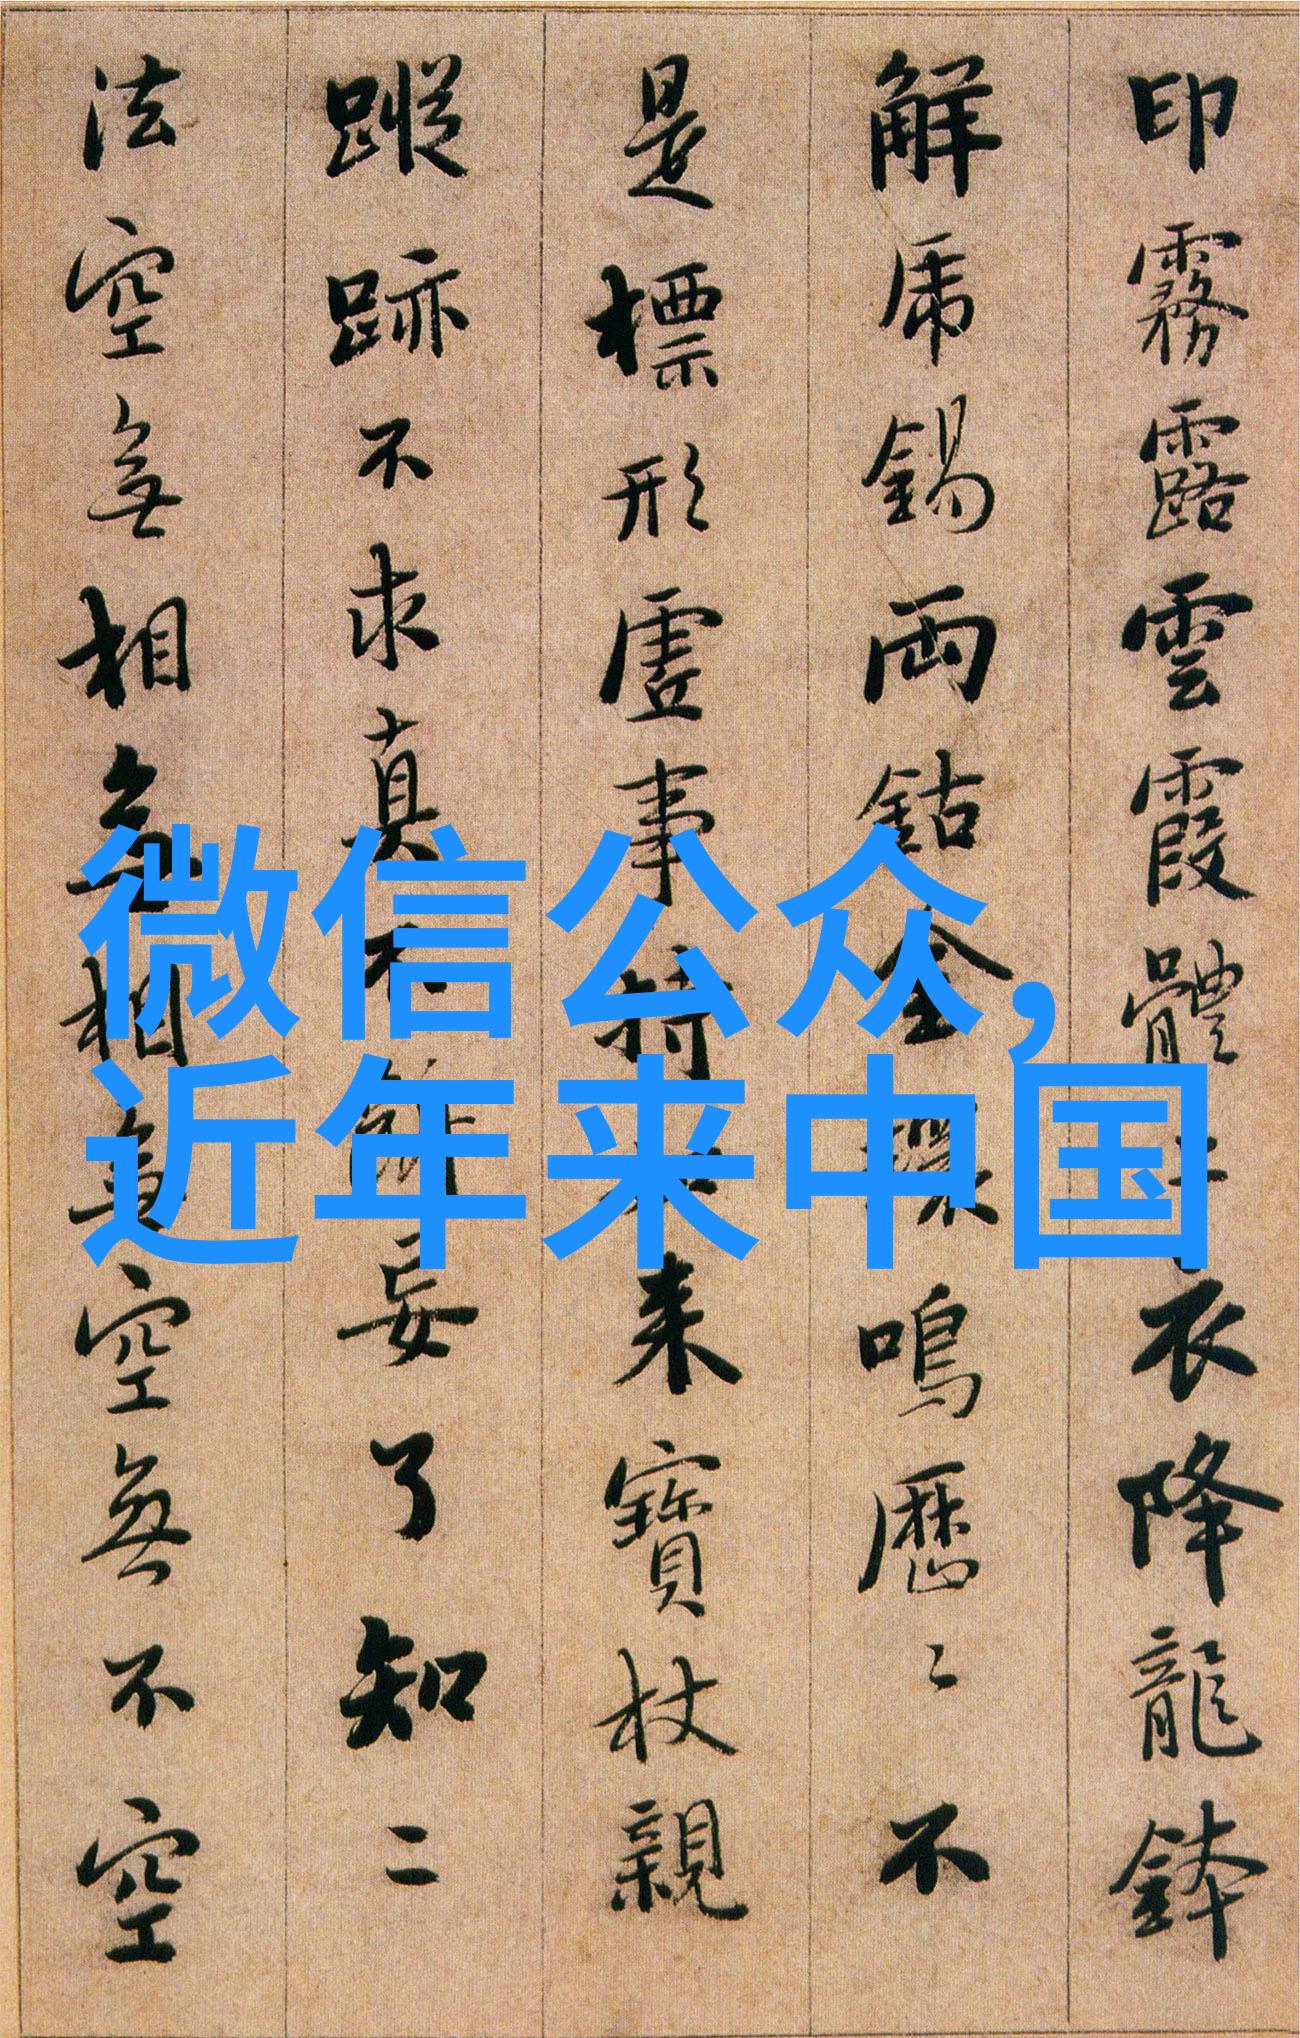 印霧露雲霞體衣降龍鉢
解虎錫兩鈷金鳴歷〻不
是標形虛事持来寶杖親
蹤跡不求真不斷妄了知二
法空無相無相無空無不空
微信公众,
近年来中国